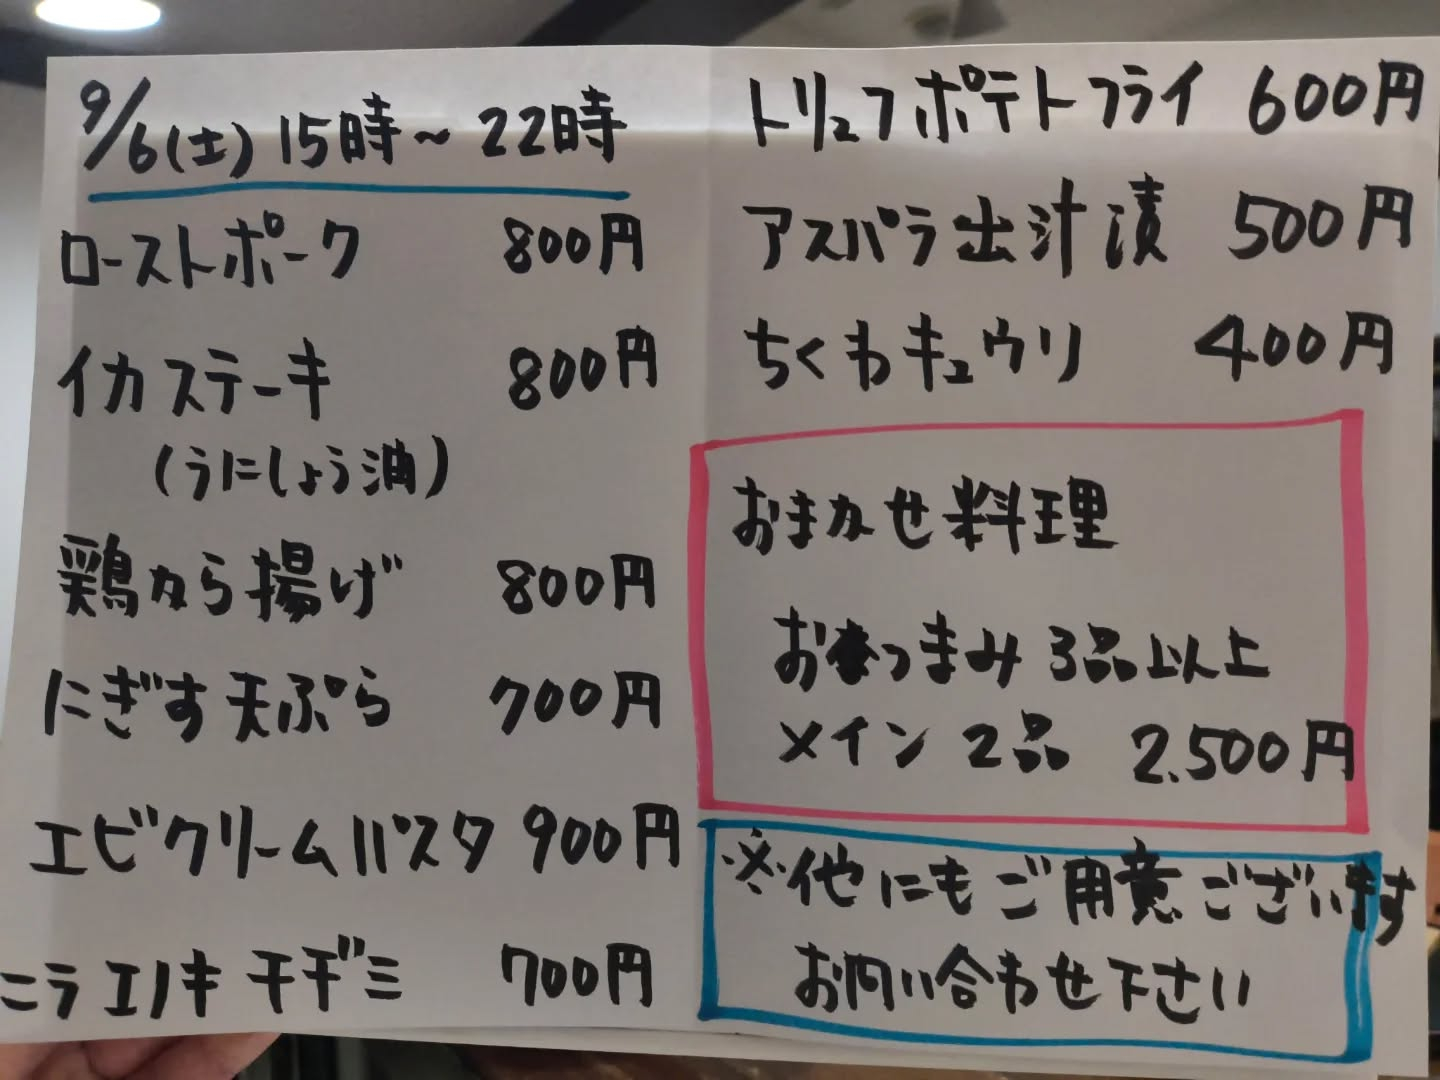 9/6(土) 15時～22時
ローストポーク 800円
イカステーキ 800円
(うにしょう油)
鶏から揚げ 800円
にぎす天ぷら 700円
エビクリームパスタ 900円
ニラエノキチヂミ 700円
トリュフポテトフライ 600円
アスパラ出汁漬 500円
ちくわキュウリ 400円
おまかせ料理
おつまみ3品以上
メイン2品 2.500円
※他にもご用意ございます
お問い合わせ下さい